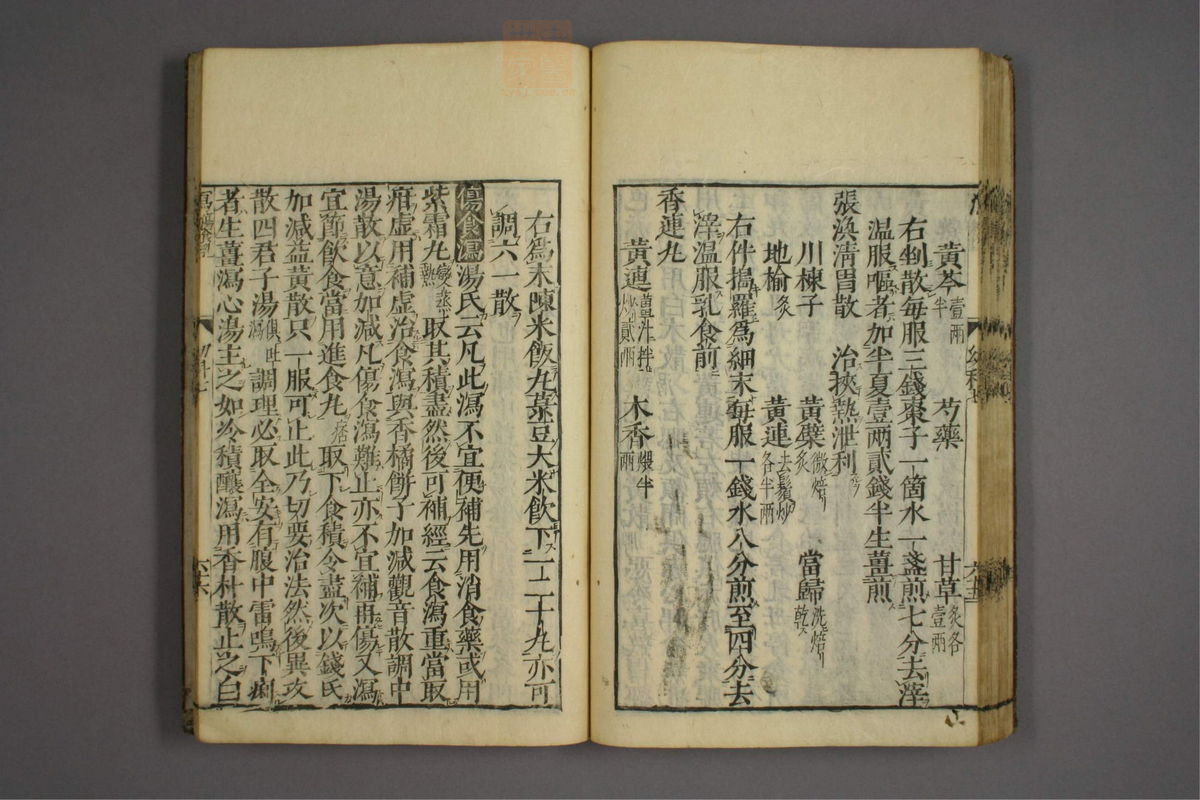 黃芩壹兩半 芍藥 甘草炙各壹兩
右剉散每服三錢棗子一箇水一盞煎七分去滓
温服嘔者加半夏壹两貳錢半生薑煎
張渙清胃散 治挾熱泄利
川楝子 黃檗微焙炙 當歸洗焙乾
地榆炙 黃連去鬚炒各半兩
右件擣羅爲細末每服一錢水八分煎至四分去
滓温服乳食前
香連丸
黃連薑汁拌炒貳兩 木香煨半兩
右爲末陳米飯丸菉豆大米飲下二三十丸亦可
調六一散
傷食瀉湯氏云凡此瀉不宜便補先用消食藥或用
紫霜丸變蒸熱取其積盡然後可補經云食瀉重當取
疳虛用補虛治食瀉與香橘餅子加減觀音散調中
湯散以意加減凡傷食瀉難止亦不宜補再傷又瀉
宜節飲食當用進食丸痞取下食積令盡次以錢氏
加減益黃散只一服可止此乃切要治法然後異攻
散四君子湯俱吐瀉調理必取全安有腹中雷鳴下痢
者生薑瀉心湯主之如冷積釀瀉用香朴散止之白
六六